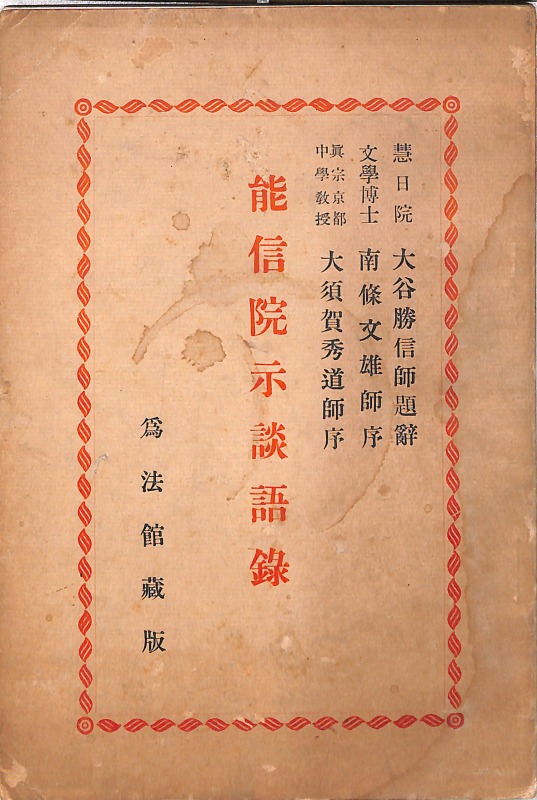 慧日院 大谷勝信師題辭
文學博士 南條文雄師序
眞宗京都中學教授 大須賀秀道師序
能信院示談語錄
爲法館藏版